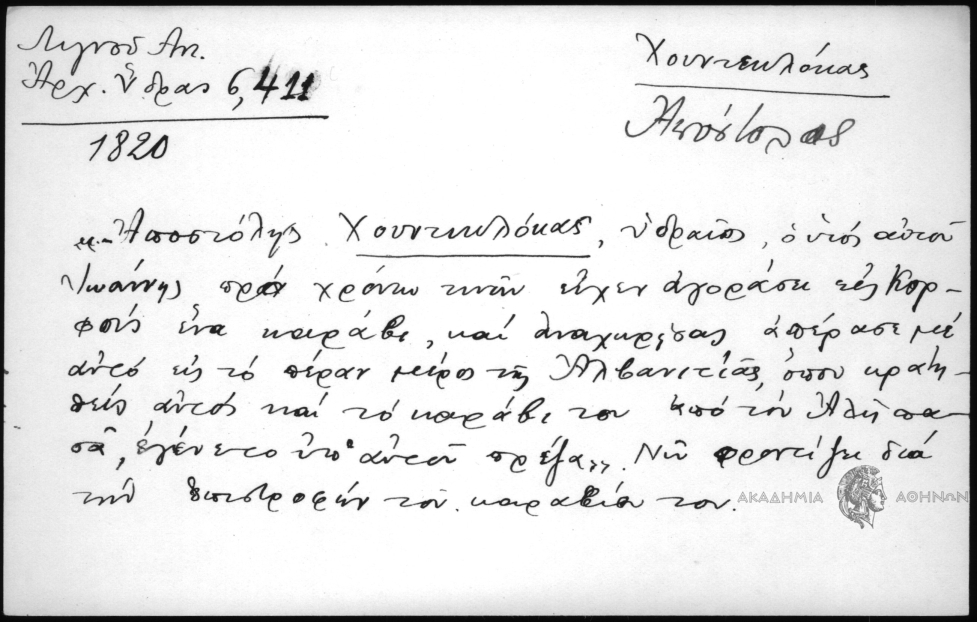 Λιγνοῦ Αν.
Ἀρχ. Ὕδρας 6,411
1820
Χουντεκλόκας
Ἀπόστολος
«Ἀποστόλης Χουντεκλόκας, ὑδραῖος, ὁ υἱός αὐτοῦ
Ἰωάννης πρό χρόνων τινῶν εἶχεν ἀγοράσει εἰς Κορ-
φούς ἕνα καράβι, καί ἀναχωρήσας ἀπέρασε μέ
αὐτό εἰς τό πέραν μέρος τῆς Ἀλβανιτιᾶς, ὅπου κρατη-
θείς αὐτός καί τό καράβι του ἀπό τόν Ἀλή πα-
σᾶ, ἐγένετο ὑπ' αὐτοῦ πρέζα». Νῦν φροντίζει διά
τήν ἐπιστροφήν τοῦ καραβίου του.
ΑΚΑΔΗΜΙΑ ΑΘΗΝΩΝ